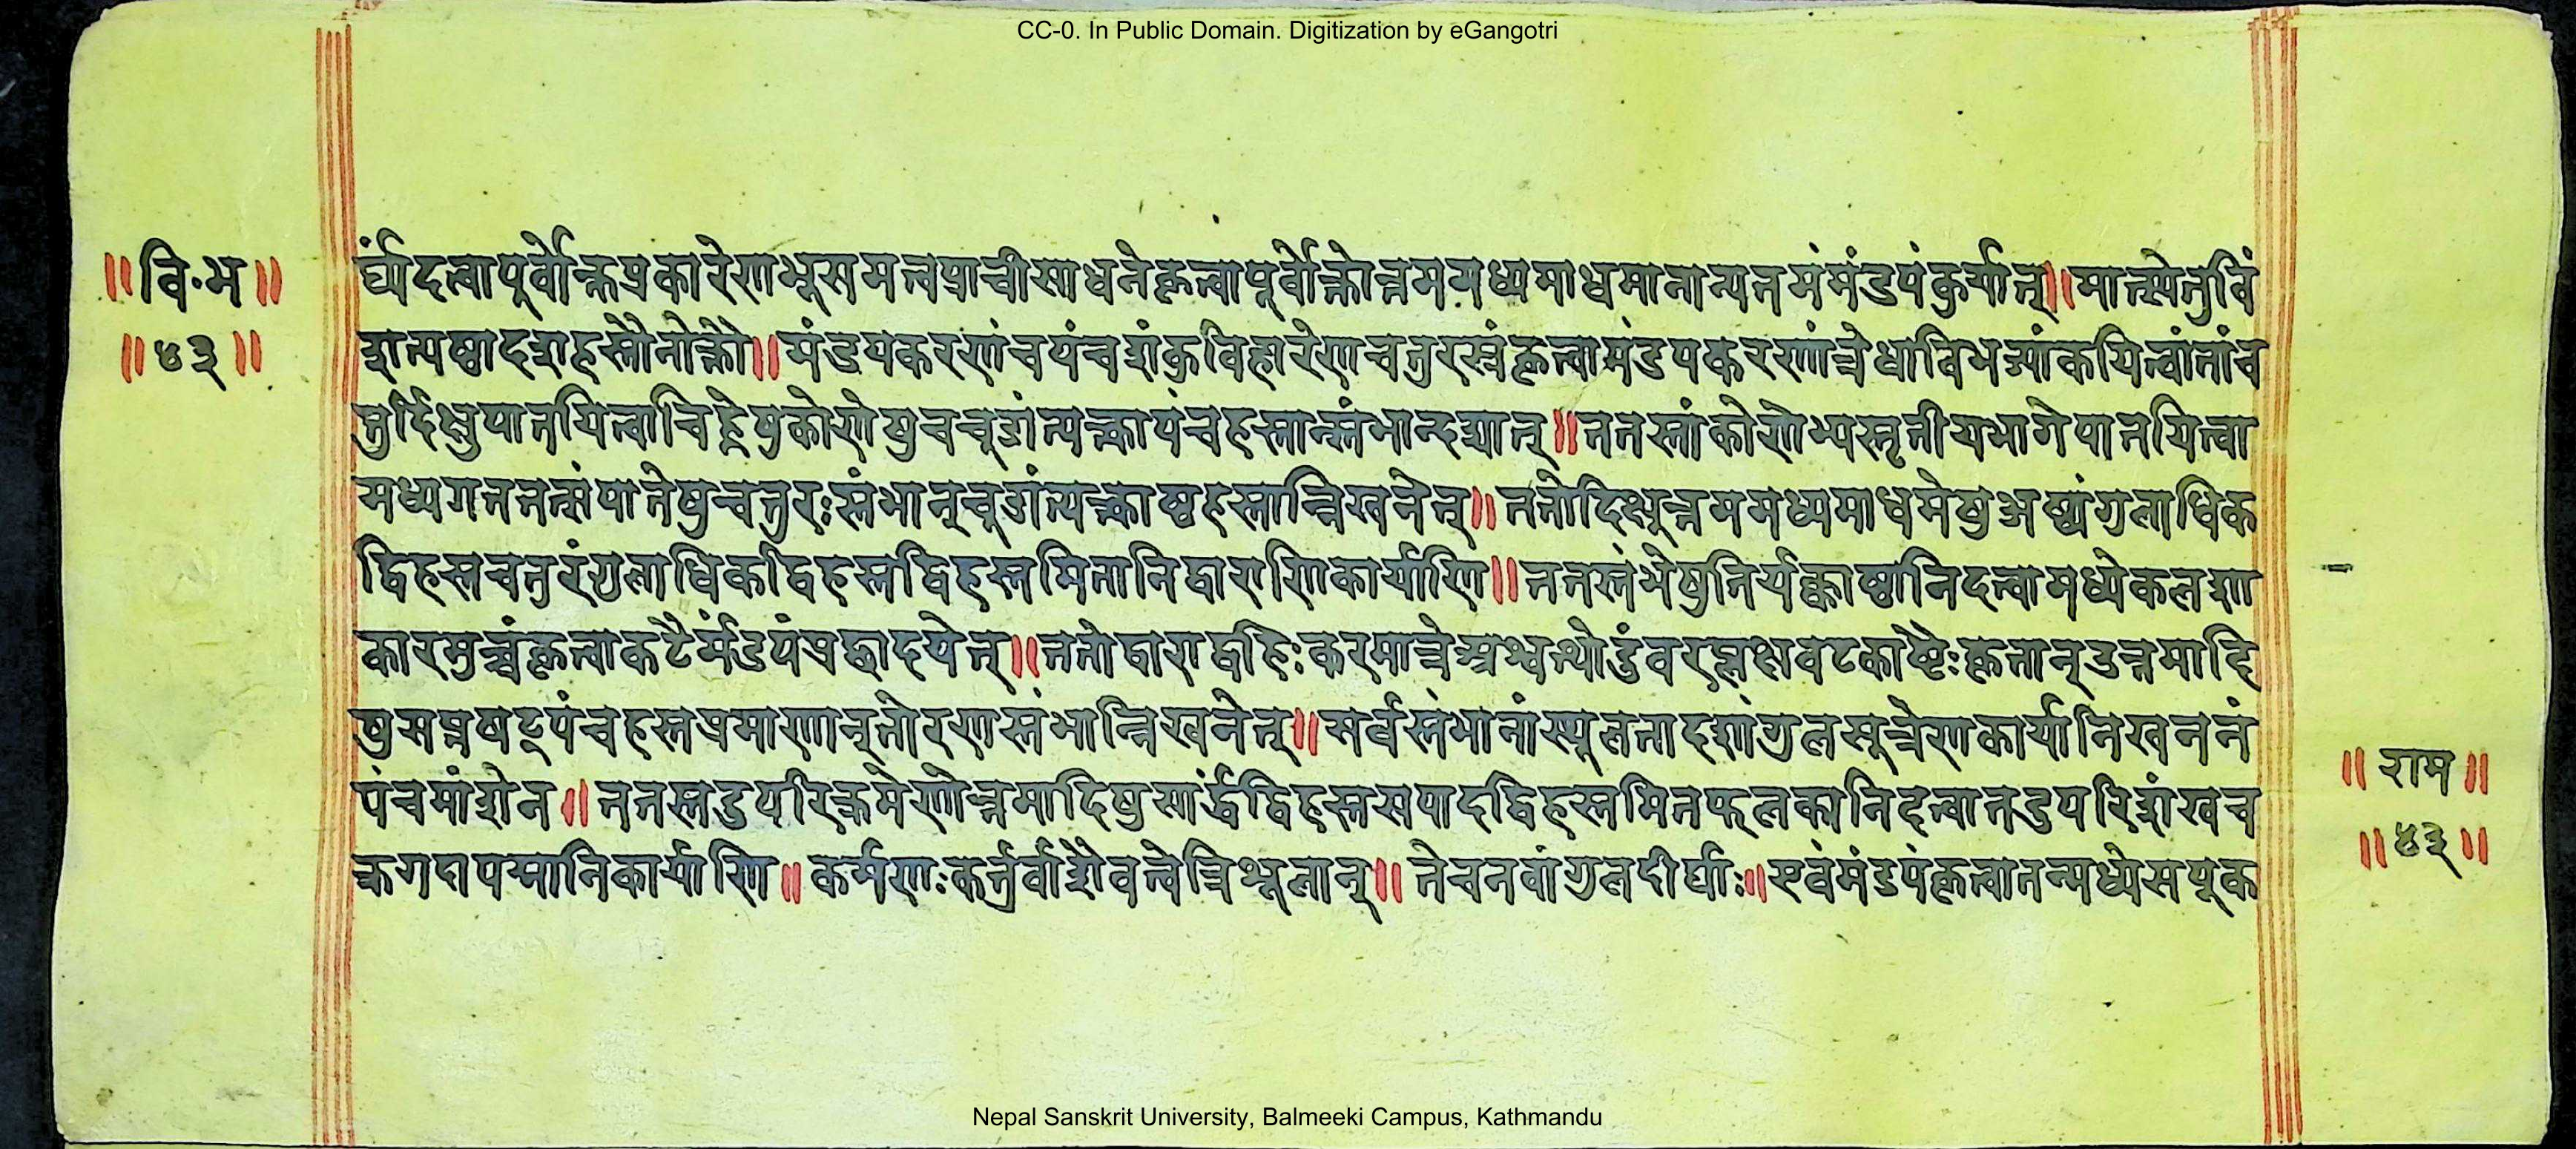 CC-0. In Public Domain. Digitization by eGangotri
॥वि·भ॥
॥४३॥
र्घ्यंदत्वापूर्वोक्तप्रकारेणभूसमत्त्वप्राचीसाधनेकृत्वापूर्वोक्तोत्तममध्यमाधमानान्यतमंमंडपंकुर्यात्॥मात्स्येतुविं
शत्यष्टादशहस्तौनोक्तौ॥मंडपकरणंचपंचशंकुविहारेणचतुरस्रंकृत्वामंडपकरणंत्रेधाविभज्यांकयित्वांतांच
तुर्दिक्षुपातयित्वाचिह्नेषुकोणेषुचचूडांत्यक्त्वापंचहस्तान्स्तंभान्दद्यात्॥ततस्तांकोणेभ्यस्तृतीयभागेपातयित्वा
मध्यगततत्संपातेषुचतुरःस्तंभान्चूडांत्यक्त्वाष्टहस्तान्निखनेत्॥ततोदिक्षूत्तममध्यमाधमेषुअष्टांगुलाधिक
द्विहस्तचतुरंगुलाधिकद्विहस्तद्विहस्तमितानिद्वाराणिकार्याणि॥ततस्तंभेषुतिर्यक्काष्ठानिदत्वामध्येकलशा
कारमुच्चंकृत्वाकटैर्मंडपंप्रछादयेत्॥ततोद्वाराद्बहिःकरमात्रेअश्वत्थोडुंवरप्लक्षवटकाष्टैःकृतान्उत्तमादि
षुसप्तषट्पंचहस्तप्रमाणान्तोरणस्तंभान्निखनेत्॥सर्वस्तंभानांस्थूलतादशांगुलसूत्रेणकार्यानिखननं
पंचमांशेन॥ततस्तदुपरिक्रमेणोत्तमादिषुसार्द्धद्विहस्तसपादद्विहस्तद्विहस्तमितफलकानिदत्वातदुपरिशंखच
क्रगदापद्मानिकार्याणि॥कर्मणःकर्तुर्वाशैवत्वेत्रिशूलान्॥तेचनवांगुलदीर्घाः॥एवंमंडपंकृत्वातन्मध्येसयूक
॥राम॥
॥४३॥
Nepal Sanskrit University, Balmeeki Campus, Kathmandu